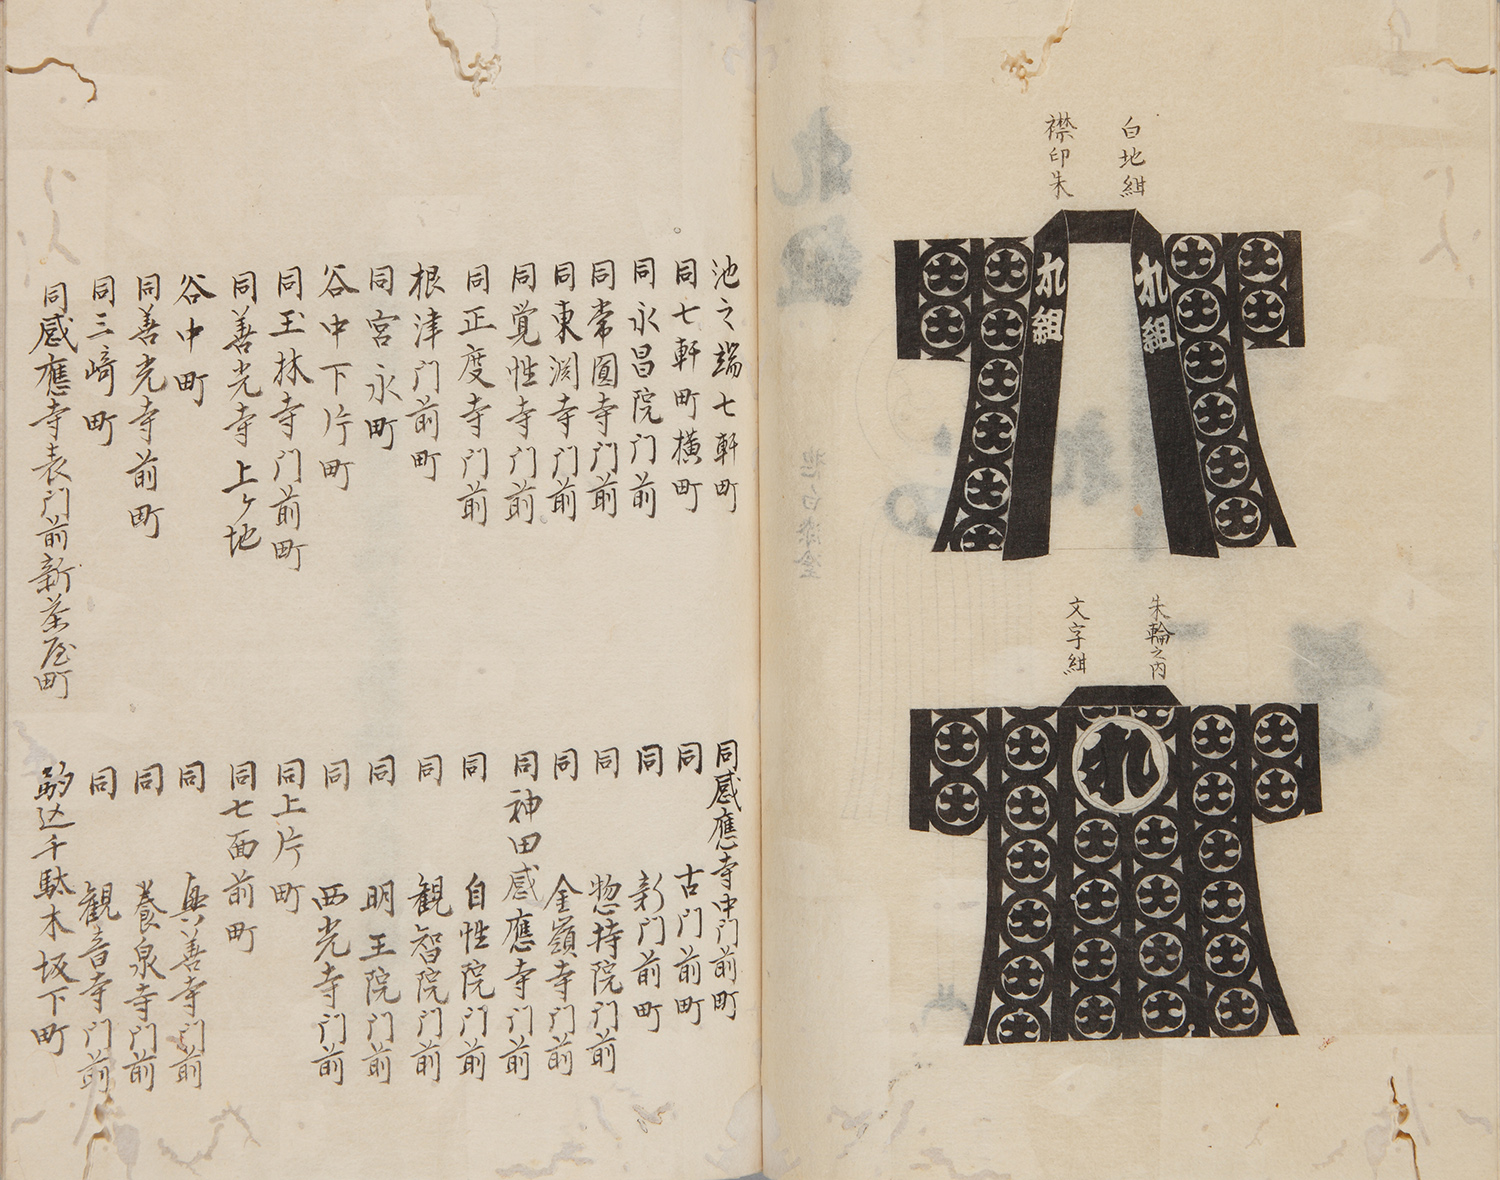 白地紺
襟印朱
れ組
れ組
朱輪之内
文字紺
れ
池之端七軒町
同七軒町横町
同永昌院門前
同常圓寺門前
同東渕寺門前
同覚性寺門前
同正度寺門前
根津門前町
同宮永町
谷中下片町
同玉林寺門前町
同善光寺上ヶ地
谷中町
同善光寺前町
同三﨑町
同感應寺表門前新茶屋町
同感應寺中門前町
同古門前町
同新門前町
同惣持院門前
同金嶺寺門前
同神田感應寺門前
同自性院門前
同観智院門前
同明王院門前
同西光寺門前
同上片町
同七面前町
同與善寺門前
同養泉寺門前
同観音寺門前
駒込千駄木坂下町